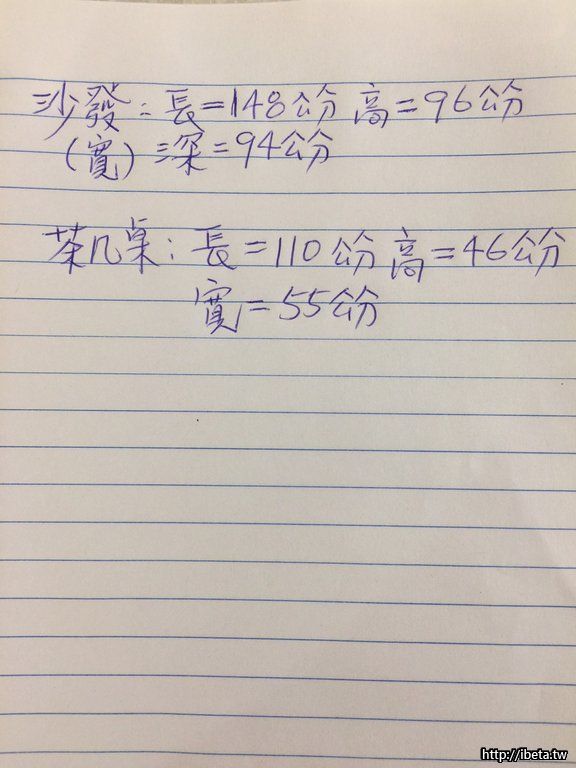 沙發：長=148公分 高=96公分
(寬) 深=94公分
茶几桌：長=110公分 高=46公分
寬=55公分
http://ibeta.tw